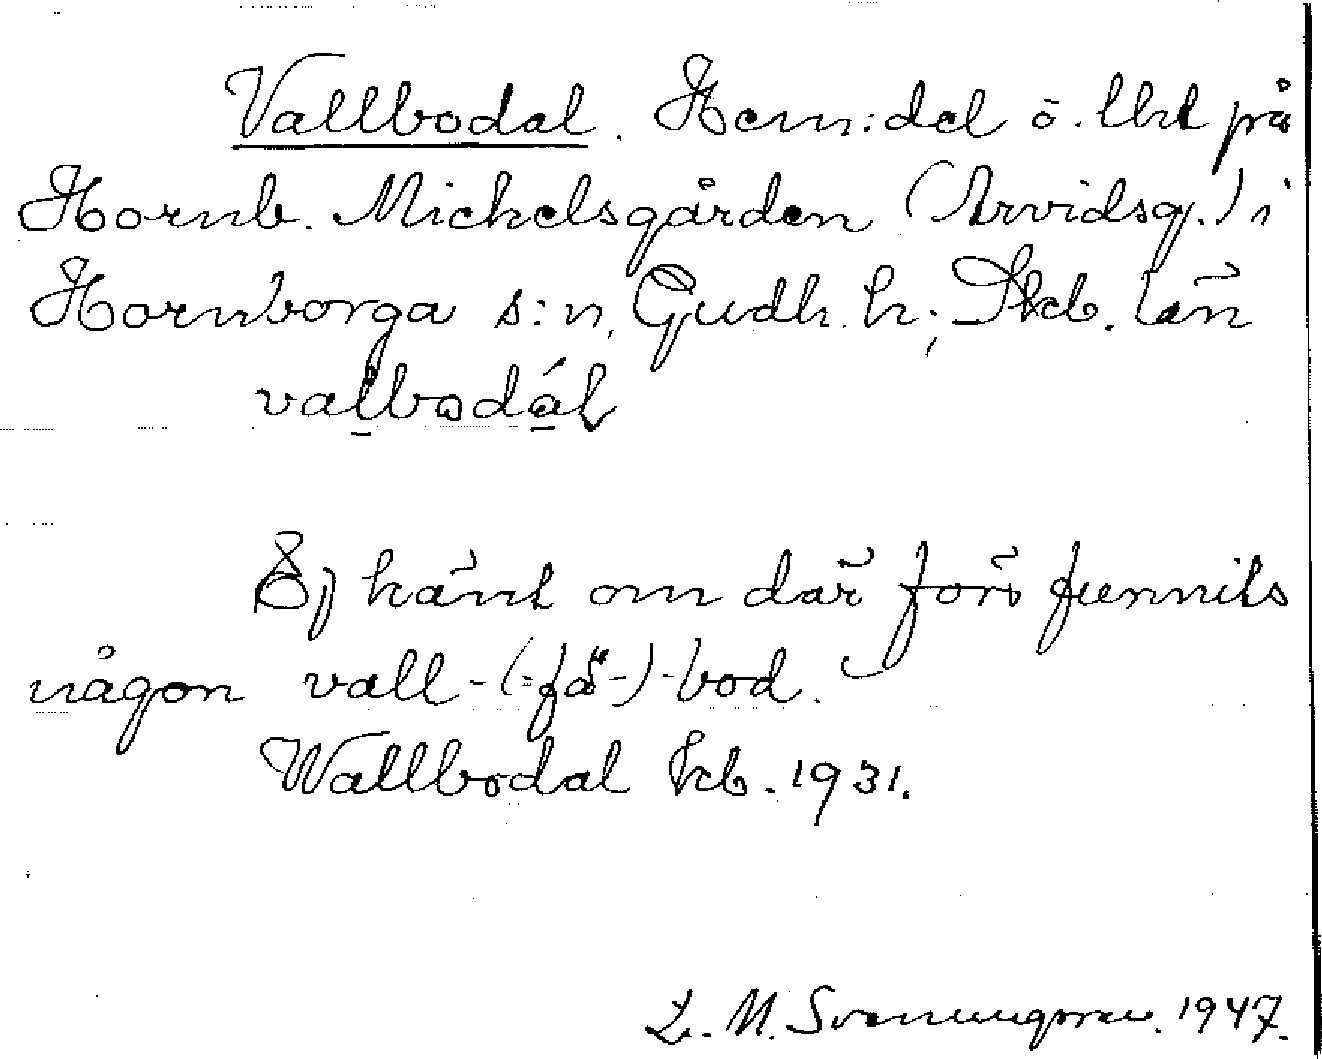 Vallbodal. Hem:del o. lht på
Hornb. Mickelsgården (Arvidsg.) i
Hornborga s:n, Gudh. h; Skb. län
valbodál
Ej känt om där förr funnits
någon vall-(=fä-)-bod.
Wallbodal kb. 1931.
L. M. Svenungsson. 1947.